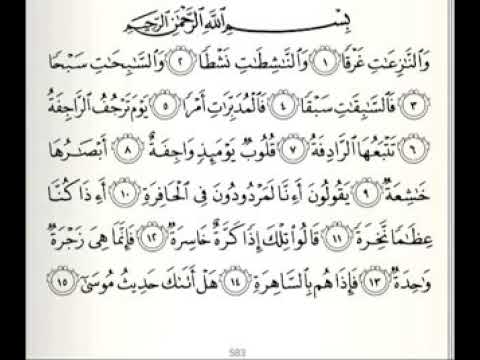 بِسْمِ ٱللَّهِ ٱلرَّحْمَٰنِ ٱلرَّحِيمِ
وَٱلنَّٰزِعَٰتِ غَرْقًا ١ وَٱلنَّٰشِطَٰتِ نَشْطًا ٢ وَٱلسَّٰبِحَٰتِ سَبْحًا
٣ فَٱلسَّٰبِقَٰتِ سَبْقًا ٤ فَٱلْمُدَبِّرَٰتِ أَمْرًا ٥ يَوْمَ تَرْجُفُ ٱلرَّاجِفَةُ
٦ تَتْبَعُهَا ٱلرَّادِفَةُ ٧ قُلُوبٌ يَوْمَئِذٍ وَاجِفَةٌ ٨ أَبْصَٰرُهَا
خَٰشِعَةٌ ٩ يَقُولُونَ أَءِنَّا لَمَرْدُودُونَ فِى ٱلْحَافِرَةِ ١٠ أَءِذَا كُنَّا
عِظَٰمًا نَّخِرَةً ١١ قَالُوا۟ تِلْكَ إِذًا كَرَّةٌ خَاسِرَةٌ ١٢ فَإِنَّمَا هِىَ زَجْرَةٌ
وَٰحِدَةٌ ١٣ فَإِذَا هُم بِٱلسَّاهِرَةِ ١٤ هَلْ أَتَىٰكَ حَدِيثُ مُوسَىٰٓ ١٥
583